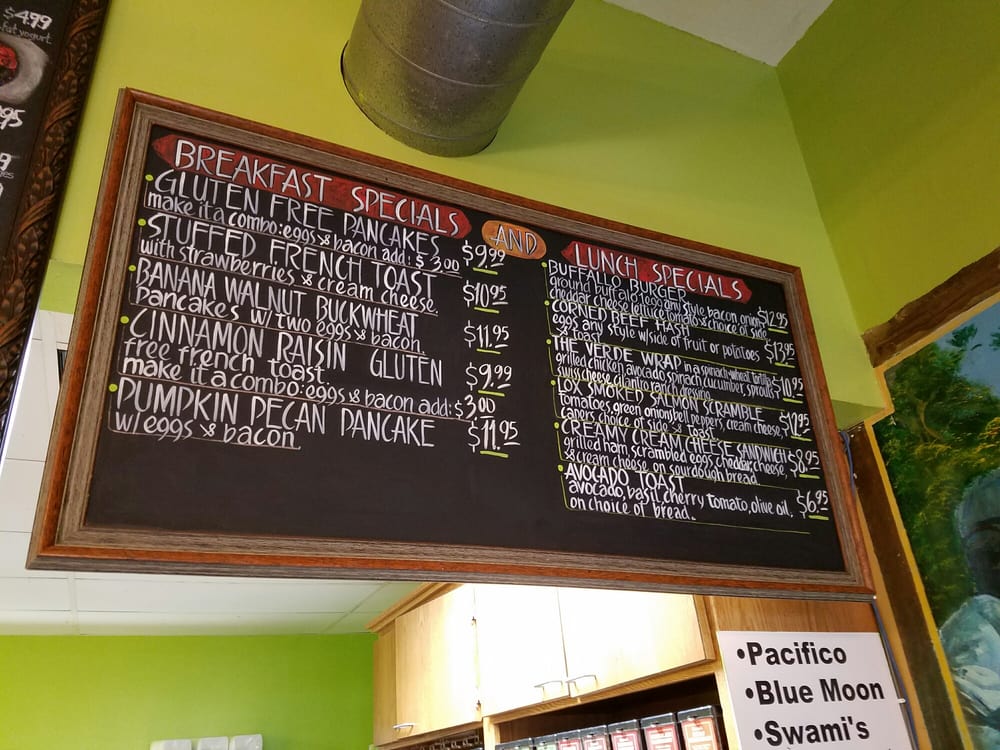 $4.99
fat yogurt.
95
9
BREAKFAST SPECIALS
AND
LUNCH SPECIALS
GLUTEN FREE PANCAKES $9.99
make it a combo: eggs & bacon add: $3.00
STUFFED FRENCH TOAST $10.95
with strawberries & cream cheese.
BANANA WALNUT BUCKWHEAT $11.95
pancakes w/ two eggs & bacon
CINNAMON RAISIN GLUTEN $9.99
free french toast.
make it a combo: eggs & bacon add: $3.00
PUMPKIN PECAN PANCAKE $11.95
w/ eggs & bacon
BUFFALO BURGER $12.95
ground buffalo style, bacon, onion,
cheddar cheese, lettuce, tomato & choice of side
CORNED BEEF HASH $13.95
eggs any style w/side of fruit or potatoes
& toast
THE VERDE WRAP in a spinach-wheat tortilla $10.95
grilled chicken, avocado, spinach, cucumber, sprouts,
swiss cheese, cilantro ranch dressing.
LOX SMOKED SALMON SCRAMBLE $12.95
tomatoes, green onions, bell peppers, cream cheese,
capers choice of side & toast.
CREAMY CREAM CHEESE SANDWICH $8.95
grilled ham, scrambled eggs, cheddar cheese,
& cream cheese on sourdough bread.
AVOCADO TOAST $6.95
avocado, basil, cherry tomato, olive oil,
on choice of bread.
•Pacifico
•Blue Moon
•Swami's